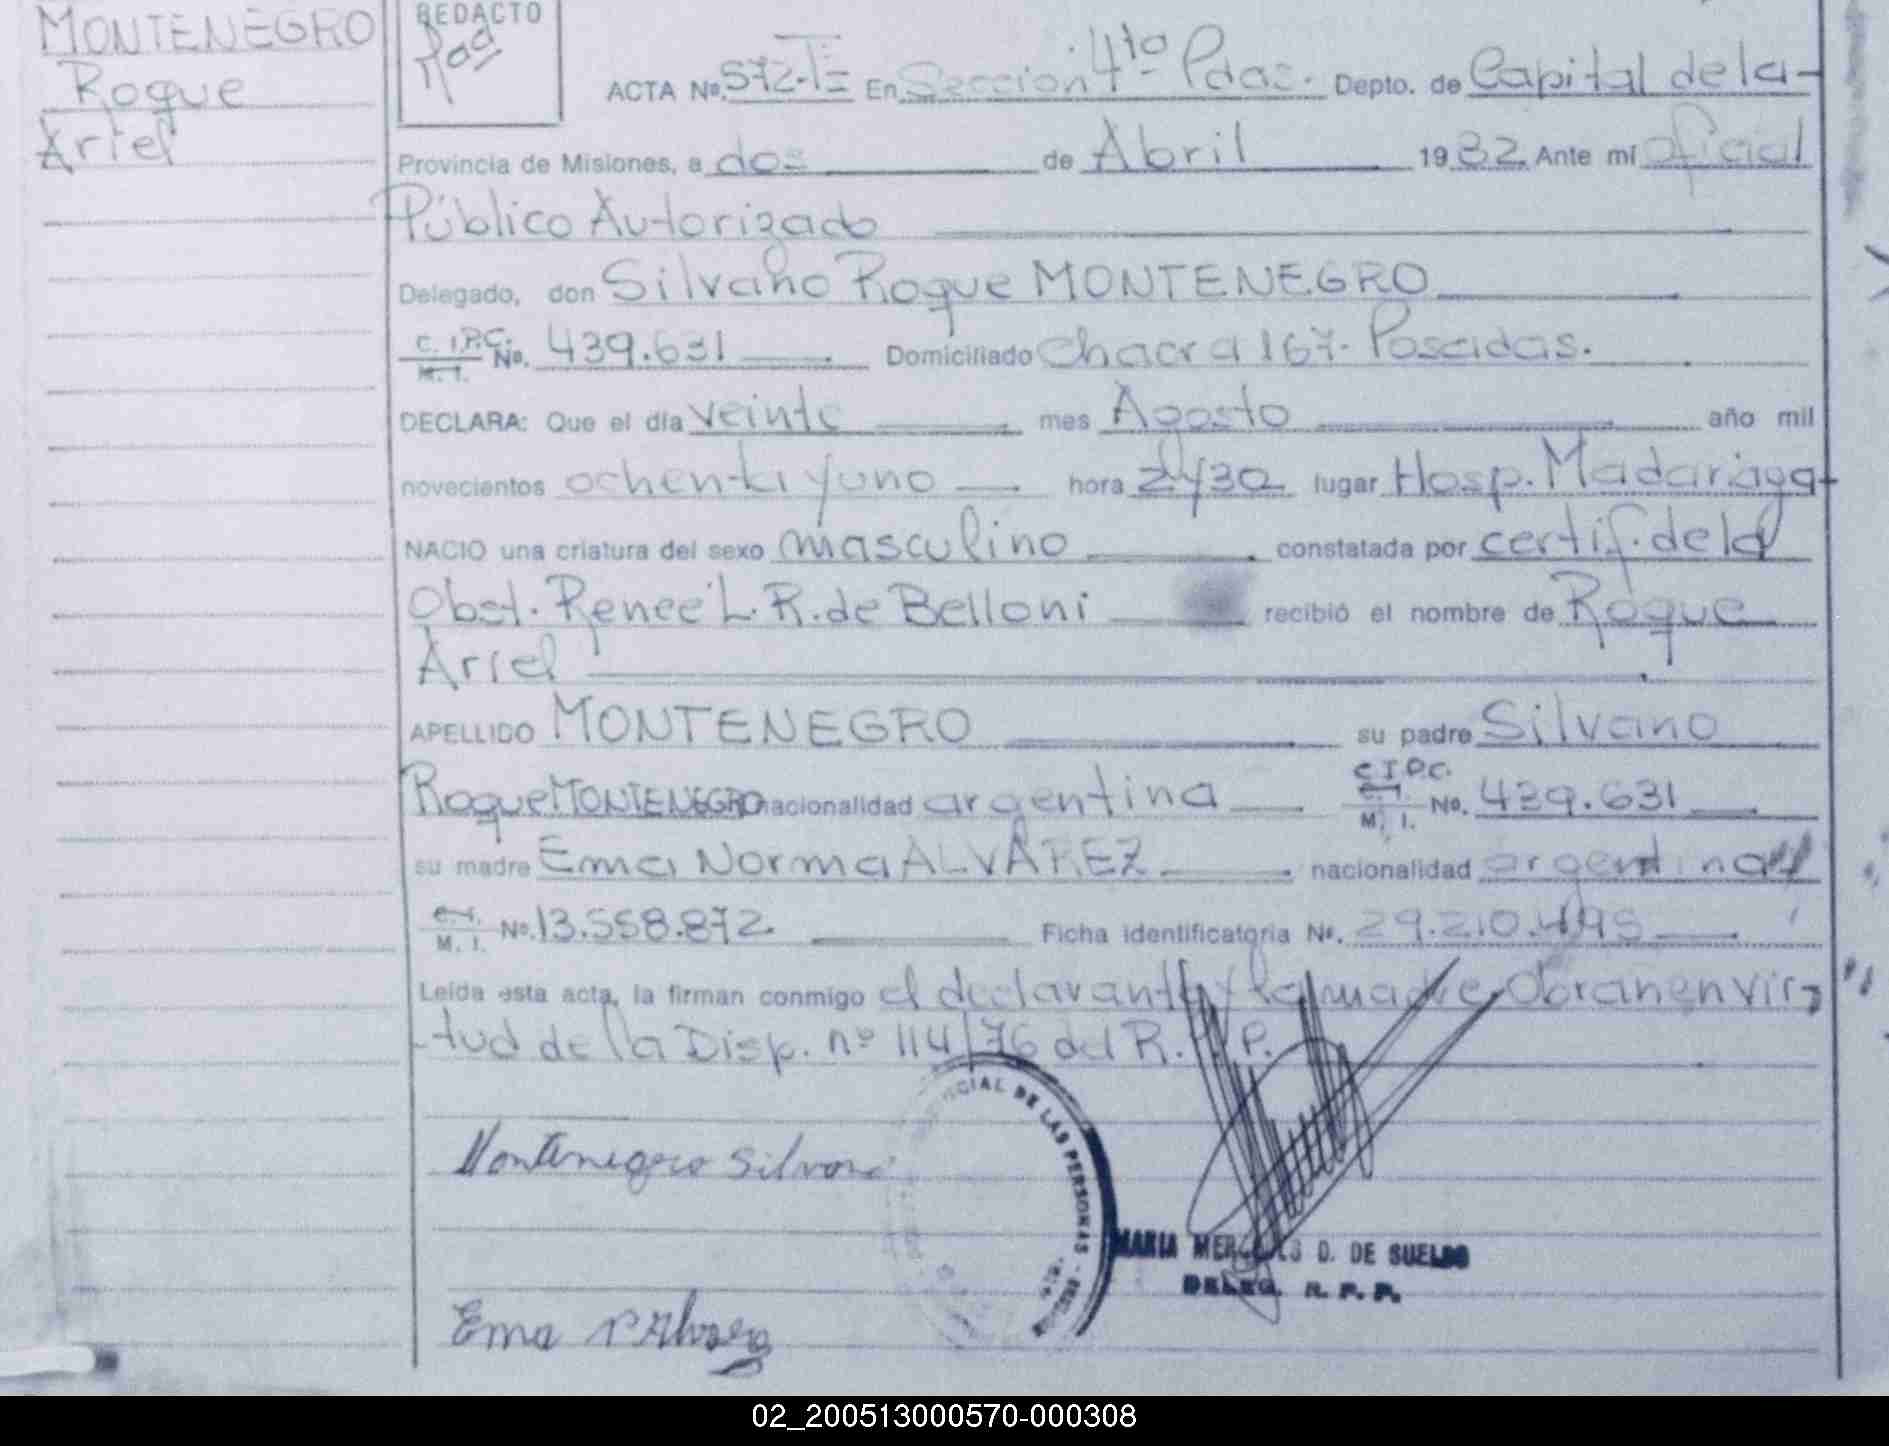 MONTENEGRO
Roque
Ariel
REDACTO
ACTA Nº. 572-Tº I En Sección 4ta Pdas. Depto. de Capital de la-
Provincia de Misiones, a dos de Abril 1982 Ante mí oficial
Público Autorizado
Delegado, don Silvano Roque MONTENEGRO
C. I.P.C. M. I. Nº. 439.631 Domiciliado Chacra 167- Posadas.
DECLARA: Que el día veinte mes Agosto año mil
novecientos ochenta y uno hora lugar Hosp. Madariaga-
NACIO una criatura del sexo masculino constatada por certif. de la
Obst. Reneé L. R. de Belloni recibió el nombre de Roque
Ariel
APELLIDO MONTENEGRO su padre Silvano
Roque MONTENEGRO nacionalidad argentina C.I.P.C. M. I. Nº. 439.631
su madre Ema Norma ALVAREZ nacionalidad argentina
M. I. Nº. 13.558.872. Ficha identificatoria Nº. 29.210.495
Leída esta acta, la firman conmigo el declarante y la madre Obran en vir-
tud de la Disp. nº 114/76 del R. P. P.
CIAL DE LAS PERSONAS
Montenegro Silvano
MARIA MERCEDES D. DE SUELDO
DELEG. R. P. P.
Ema N Alvarez
02_200513000570-000308